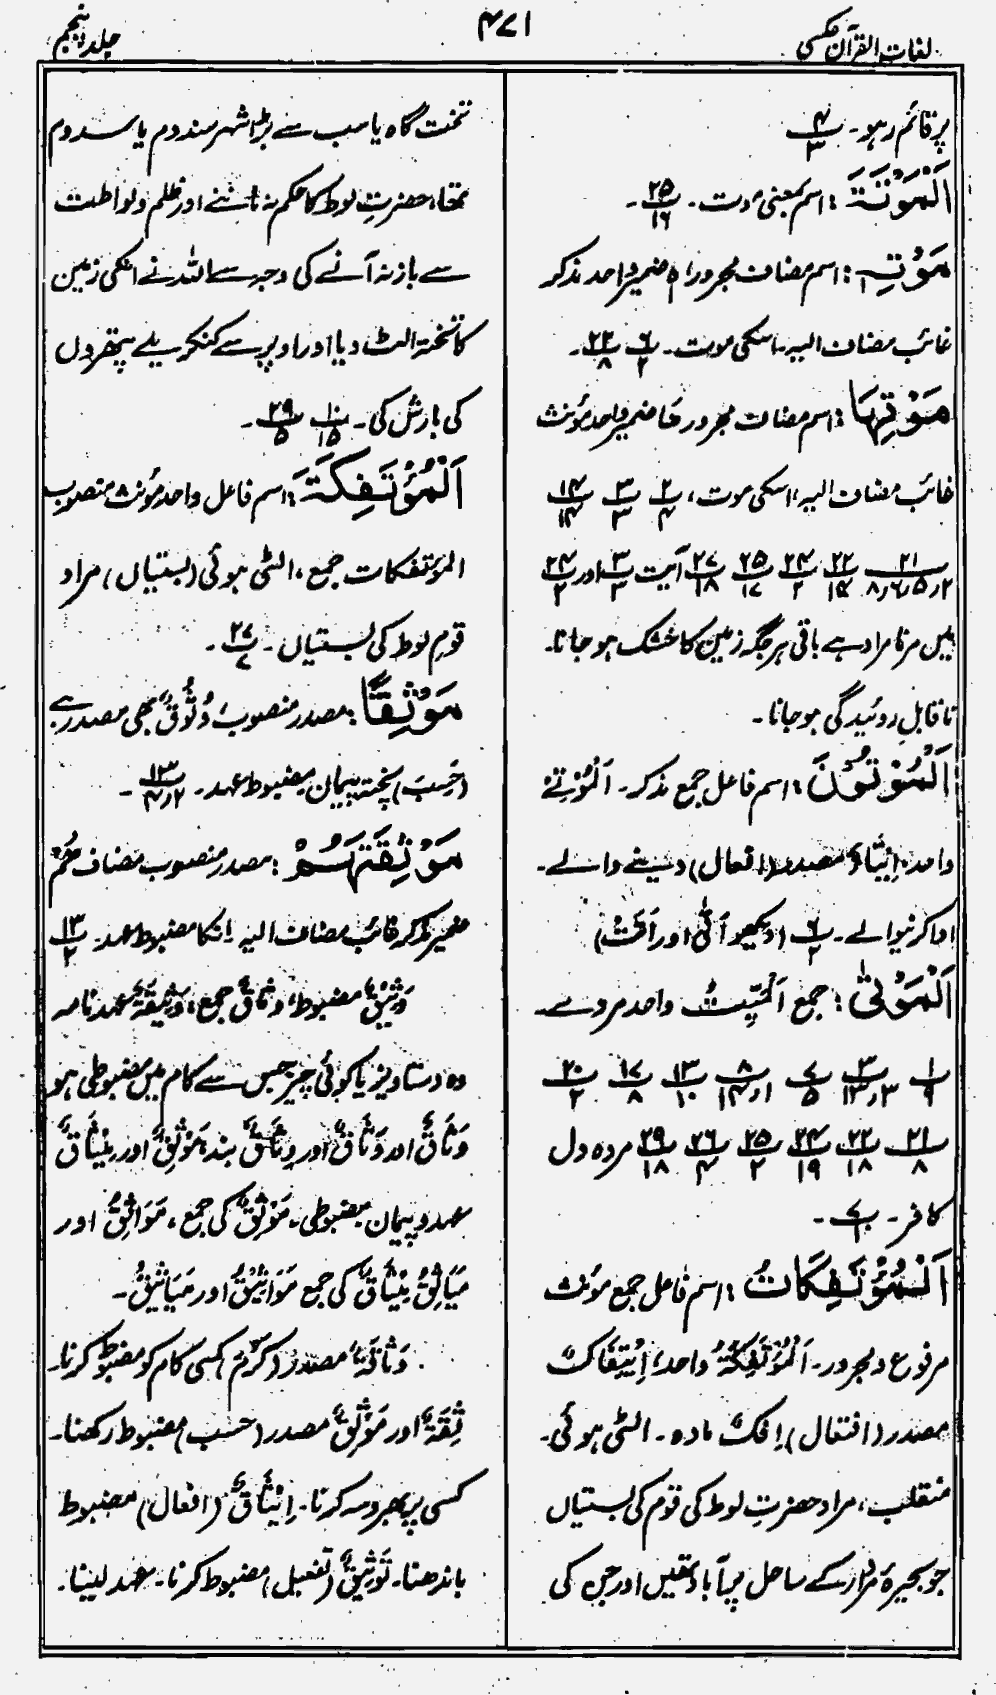 لغات القرآن عکسی
۴۷۱
جلد پنجم
پر قائم رہو۔ ۴/۳
اَلْمَوْتَةَ : اسم بمعنی موت۔ ۲۵/۱۶۔
مَوْتِہٖ : اسم مضاف مجرور ہ ضمیر واحد مذکر
غائب مضاف الیہ۔ اسکی موت۔ ۶/۲ ۲۲/۸۔
مَوْتِہَا : اسم مضاف مجرور ھا ضمیر واحد مؤنث
غائب مضاف الیہ، اسکی موت، ۲/۴ ۳/۳ ۱۴/۱۴
۲۱/۲ر۵ر۶ر۸ ۲۲/۱۵ ۲۴/۲ ۲۵/۱۷ ۲۷/۱۸ آیت ۳/۳ اور ۲۴/۲
میں مرنا مراد ہے باقی ہر جگہ زمین کا خشک ہو جانا۔
نا قابلِ روئیدگی ہو جانا۔
اَلْمُؤْتُوْنَ : اسم فاعل جمع مذکر۔ اَلْمُؤْتِیْ
واحد۔ اِیْتَاءٌ مصدر (افعال) دینے والے۔
ادا کرنیوالے۔ ۶/۲ (دیکھو آتٰی اور اَتَتْ)
اَلْمَوْتٰی : جمع اَلْمَیِّتُ واحد مردے۔
۱/۹ ۳/۳ر۱۳ ۷/۵ ۸/۱ر۱۴ ۱۳/۱۰ ۱۷/۸ ۲۰/۲
۲۱/۸ ۲۲/۱۸ ۲۴/۱۹ ۲۵/۲ ۲۶/۴ ۲۹/۱۸ مردہ دل
کافر۔ ۷/۱۔
اَلْمُؤْتَفِکَاتُ : اسم فاعل جمع مؤنث
مرفوع و مجرور۔ اَلْمُؤْتَفِکَةُ واحد، اِیْتِفَاکٌ
مصدر (افتعال) اِفْکٌ مادہ۔ الٹی ہوئی۔
منقلب، مراد حضرتِ لوط کی قوم کی بستیاں
جو بحیرۂ مردار کے ساحل پر آباد تھیں اور جن کی
تخت گاہ یا سب سے بڑا شہر سندوم یا سدوم
تھا، حضرتِ لوط کا حکم نہ ماننے اور ظلم و لواطت
سے باز نہ آنے کی وجہ سے اللہ نے انکی زمین
کا تختہ الٹ دیا اور اوپر سے کنکریلے پتھروں
کی بارش کی۔ ۱۰/۱۵ ۲۹/۵۔
اَلْمُؤْتَفِکَةَ : اسم فاعل واحد مؤنث منصوب
المؤتفکات جمع، الٹی ہوئی (بستیاں) مراد
قوم لوط کی بستیاں۔ ۲۷/۷۔
مَوْثِقًا : مصدر منصوب، وُثُوْقٌ بھی مصدر ہے
(حَسِبَ) پختہ پیمان مضبوط عہد۔ ۱۳/۲ر۴۔
مَوْثِقَہُمْ : مصدر منصوب مضاف ھُمْ
ضمیر مذکر غائب مضاف الیہ انکا مضبوط عہد ۱۳/۲
وَثِیْقٌ مضبوط، وِثَاقٌ جمع، وَثِیْقَةٌ عہد نامہ
وہ دستاویز یا کوئی چیز جس سے کام میں مضبوطی ہو
وَثَاقٌ اور وَثَاقٌ اور وِثَاقٌ بند، مَوْثِقٌ اور مِیْثَاقٌ
عہد و پیمان مضبوطی۔ مَوْثِقٌ کی جمع، مَوَاثِقُ اور
مَیَاثِقُ مِیْثَاقٌ کی جمع مَوَاثِیْقُ اور مَیَاثِیْقُ۔
وَثَاقَةٌ مصدر (کَرُمَ) کسی کام کو مضبوط کرنا۔
ثِقَةٌ اور مَوْثِقٌ مصدر (حسب) مضبوط رکھنا۔
کسی پر بھروسہ کرنا۔ اِیْثَاقٌ (افعال) مضبوط
باندھنا۔ تَوْثِیْقٌ (تفعیل) مضبوط کرنا۔ عہد لینا۔